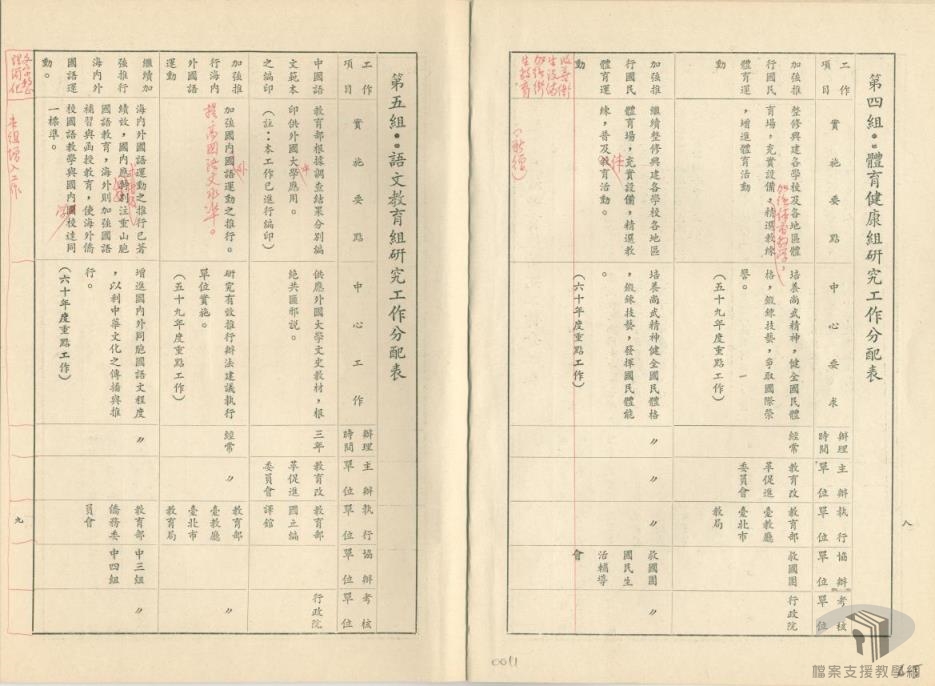 第四組：體育健康組研究工作分配表
工作項目
實施要點
中心要求
辦理時間
主辦單位
執行單位
協辦單位
考核單位
加強推行國民體育運動
整修興建各學校及各地區體育場，充實設備，精選教練，增進體育活動
培養尚武精神，健全國民體格，鍛鍊技藝，爭取國際榮譽。
（五十九年度重點工作）
經常
教育改革促進委員會
教育部
臺教廳
臺北市教局
救國團
行政院
加強推行國民體育運動
繼續整修興建各學校各地區體育場，充實設備，精選教練，普及教育活動。
培養尚武精神健全國民體格，鍛鍊技藝，發揮國民體能。
（六十年度重點工作）
〃
〃
〃
救國團
國民生活輔導會
〃
八
第五組：語文教育組研究工作分配表
工作項目
實施要點
中心工作
辦理時間
主辦單位
執行單位
協辦單位
考核單位
中國語文範本之編印
教育部根據調查結果分別編印供外國大學應用。
（註：本工作已進行編印）
供應外國大學文史教材，根絕共匪邪說。
三年
教育改革促進委員會
教育部
國立編譯館
行政院
加強推行海內外國語運動
加強國內國語運動之推行。
提高國語文水準。
研究有效推行辦法建議執行單位實施。
（五十九年度重點工作）
經常
〃
教育部
臺教廳
臺北市教育局
〃
繼續加強推行海內外國語運動。
海內外國語運動之推行已著績效，國內應特別注重山胞國語教育，海外則加強國語補習與函授教育，使海外僑校國語教學與國內國校達同一標準。
增進國內外同胞國語文程度，以利中華文化之傳播與推行。
（六十年度重點工作）
〃
教育部
僑務委員會
中三組
中四組
〃
本組增入工作
九
0011
檔案支援教學網